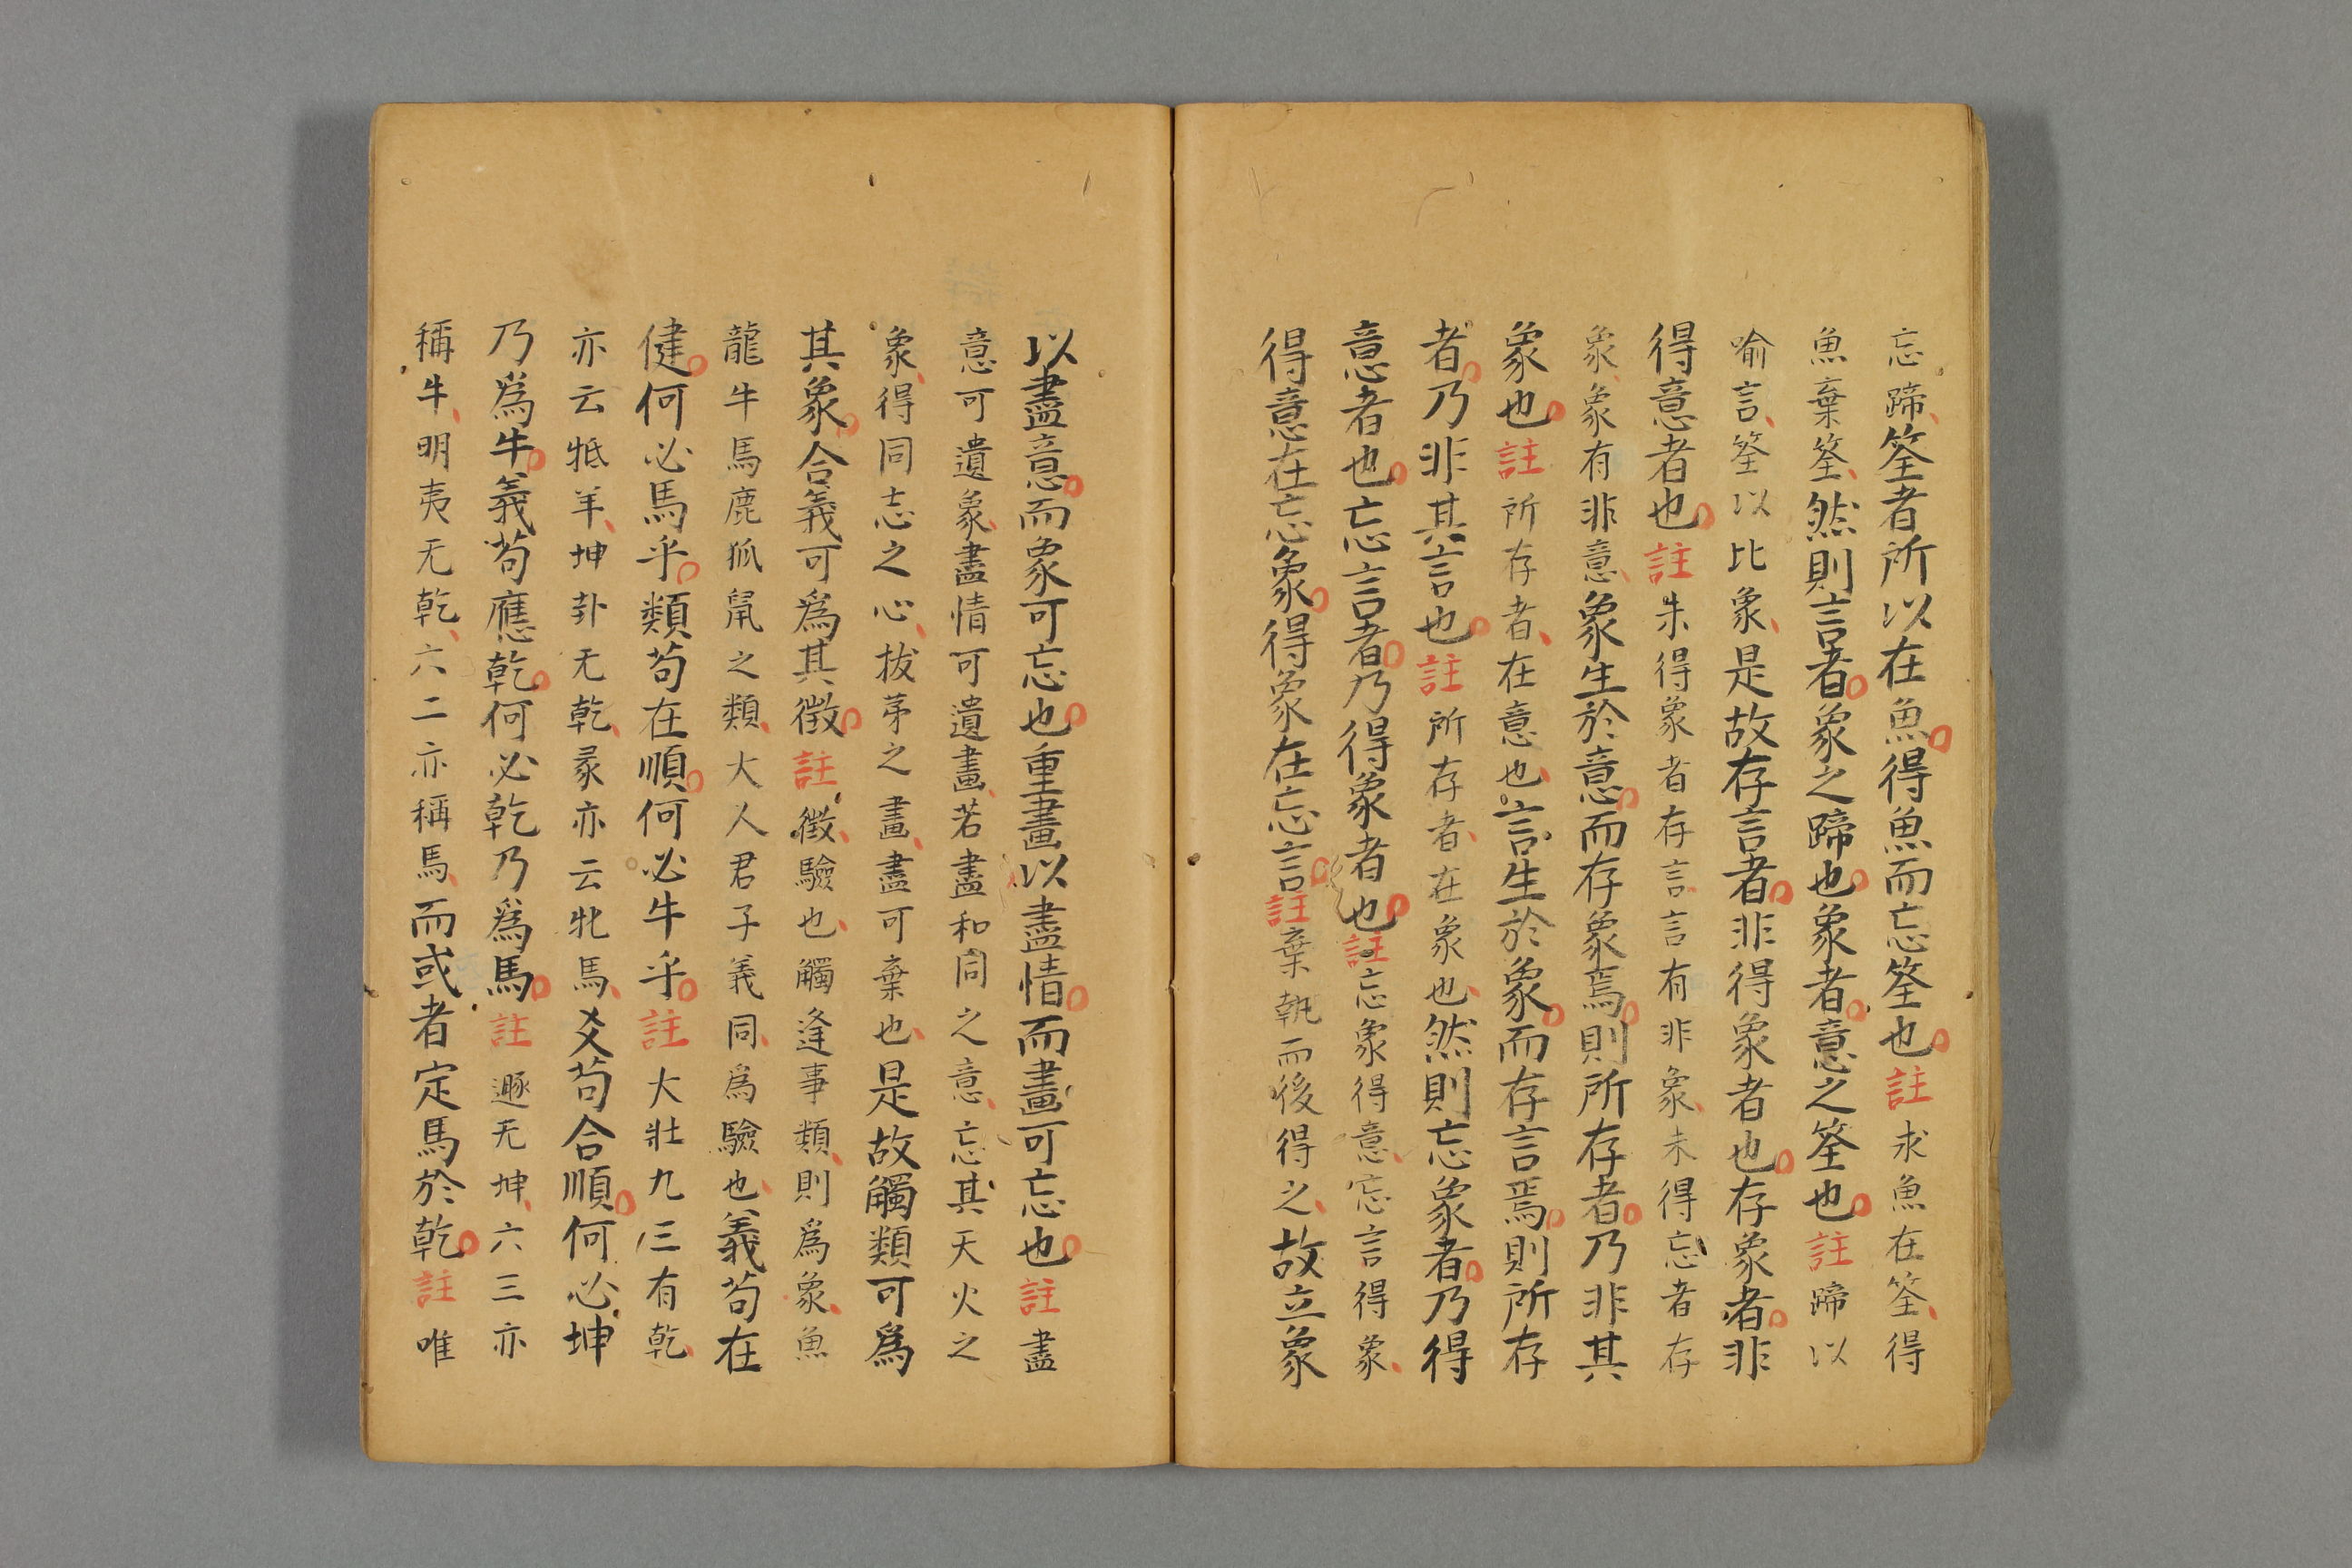 忘蹄筌者所以在魚得魚而忘筌也註求魚在筌得
魚棄筌然則言者象之蹄也象者意之筌也註蹄以
喻言筌以比象是故存言者非得象者也存象者非
得意者也註未得象者存言言有非象未得忘者存
象象有非意象生於意而存象焉則所存者乃非其
象也註所存者在意也言生於象而存言焉則所存
者乃非其言也註所存者在象也然則忘象者乃得
意者也忘言者乃得象者也註忘象得意忘言得象
得意在忘象得象在忘言註棄執而後得之故立象
以盡意而象可忘也重畫以盡情而畫可忘也註盡
意可遺象盡情可遺畫若盡和同之意忘其天火之
象得同志之心拔茅之畫盡可棄也是故觸類可為
其象合義可為其徵註徵驗也觸逢事類則為象魚
龍牛馬鹿狐鼠之類大人君子義同為驗也義苟在
健何必馬乎類苟在順何必牛乎註大壯九三有乾
亦云羝羊坤卦无乾彖亦云牝馬爻苟合順何必坤
乃為牛義苟應乾何必乾乃為馬註遯无坤六三亦
稱牛明夷无乾六二亦稱馬而或者定馬於乾註唯